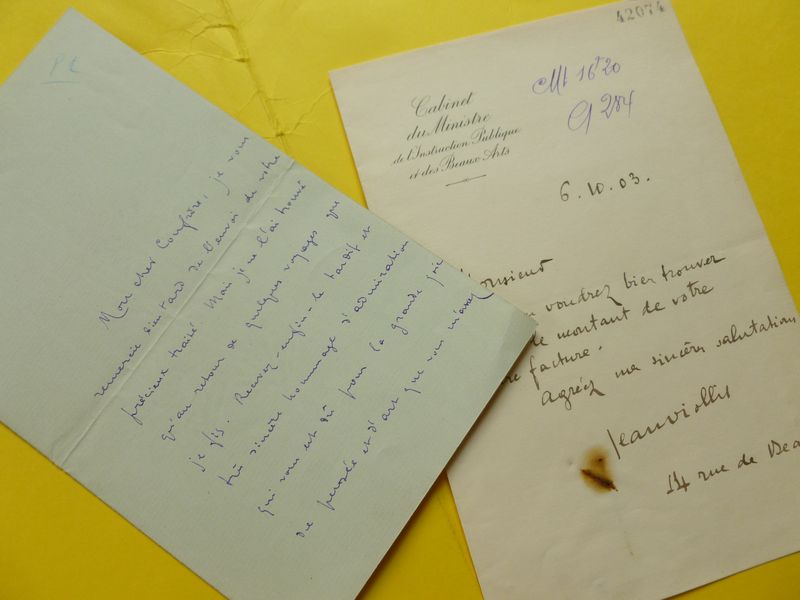 Pt
Mon cher Confrère, je vous
remercie bien tard de l'envoi de votre
précieux traité. Mais je ne l'ai trouvé
qu'au retour de quelques voyages que
je fis. Recevez - enfin - le tardif et
très sincère hommage d'admiration
qui vous est dû pour la grande joie
de pensée et d'art que vous m'avez
42074
Cabinet
du Ministre
de l'Instruction Publique
et des Beaux Arts
Mt 16.20
G 284
6.10.03.
Monsieur
voudrez bien trouver
le montant de votre
facture.
Agréez ma sincère salutation
Jean Viollis
14 rue de Bea